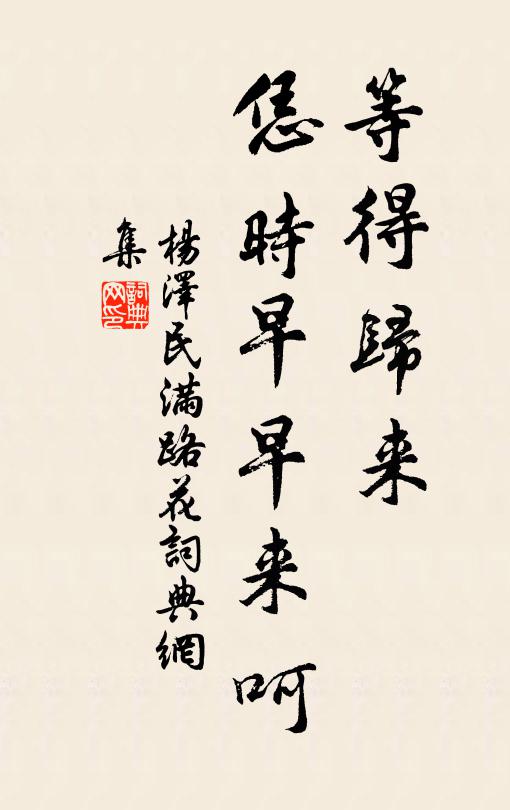 等得歸来
恁時早早来呵
楊澤民滿路花詞典網
集
詞典
网印